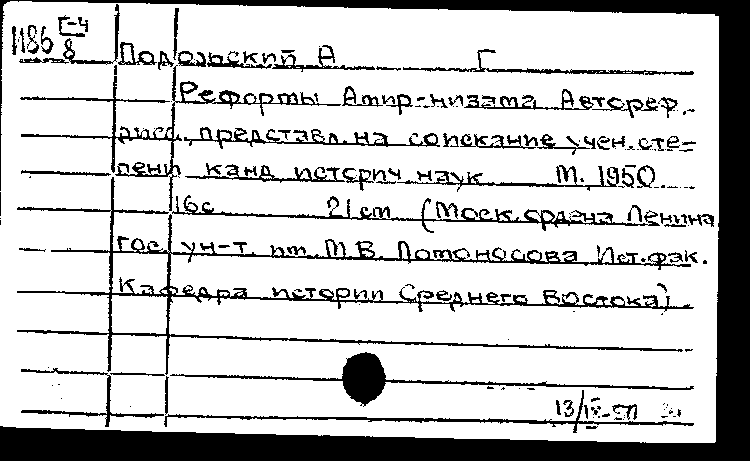 1186 Г-4
8
Подольский, А Г
Реформы Амир-низама Автореф.
дисс., представл. на соискание учен. сте-
пени канд историч. наук М. 1950
16с 21 см (Моск. ордена Ленина
гос. ун-т. им. М. В. Ломоносова Ист. фак.
Кафедра истории Среднего Востока).
13/IX-50